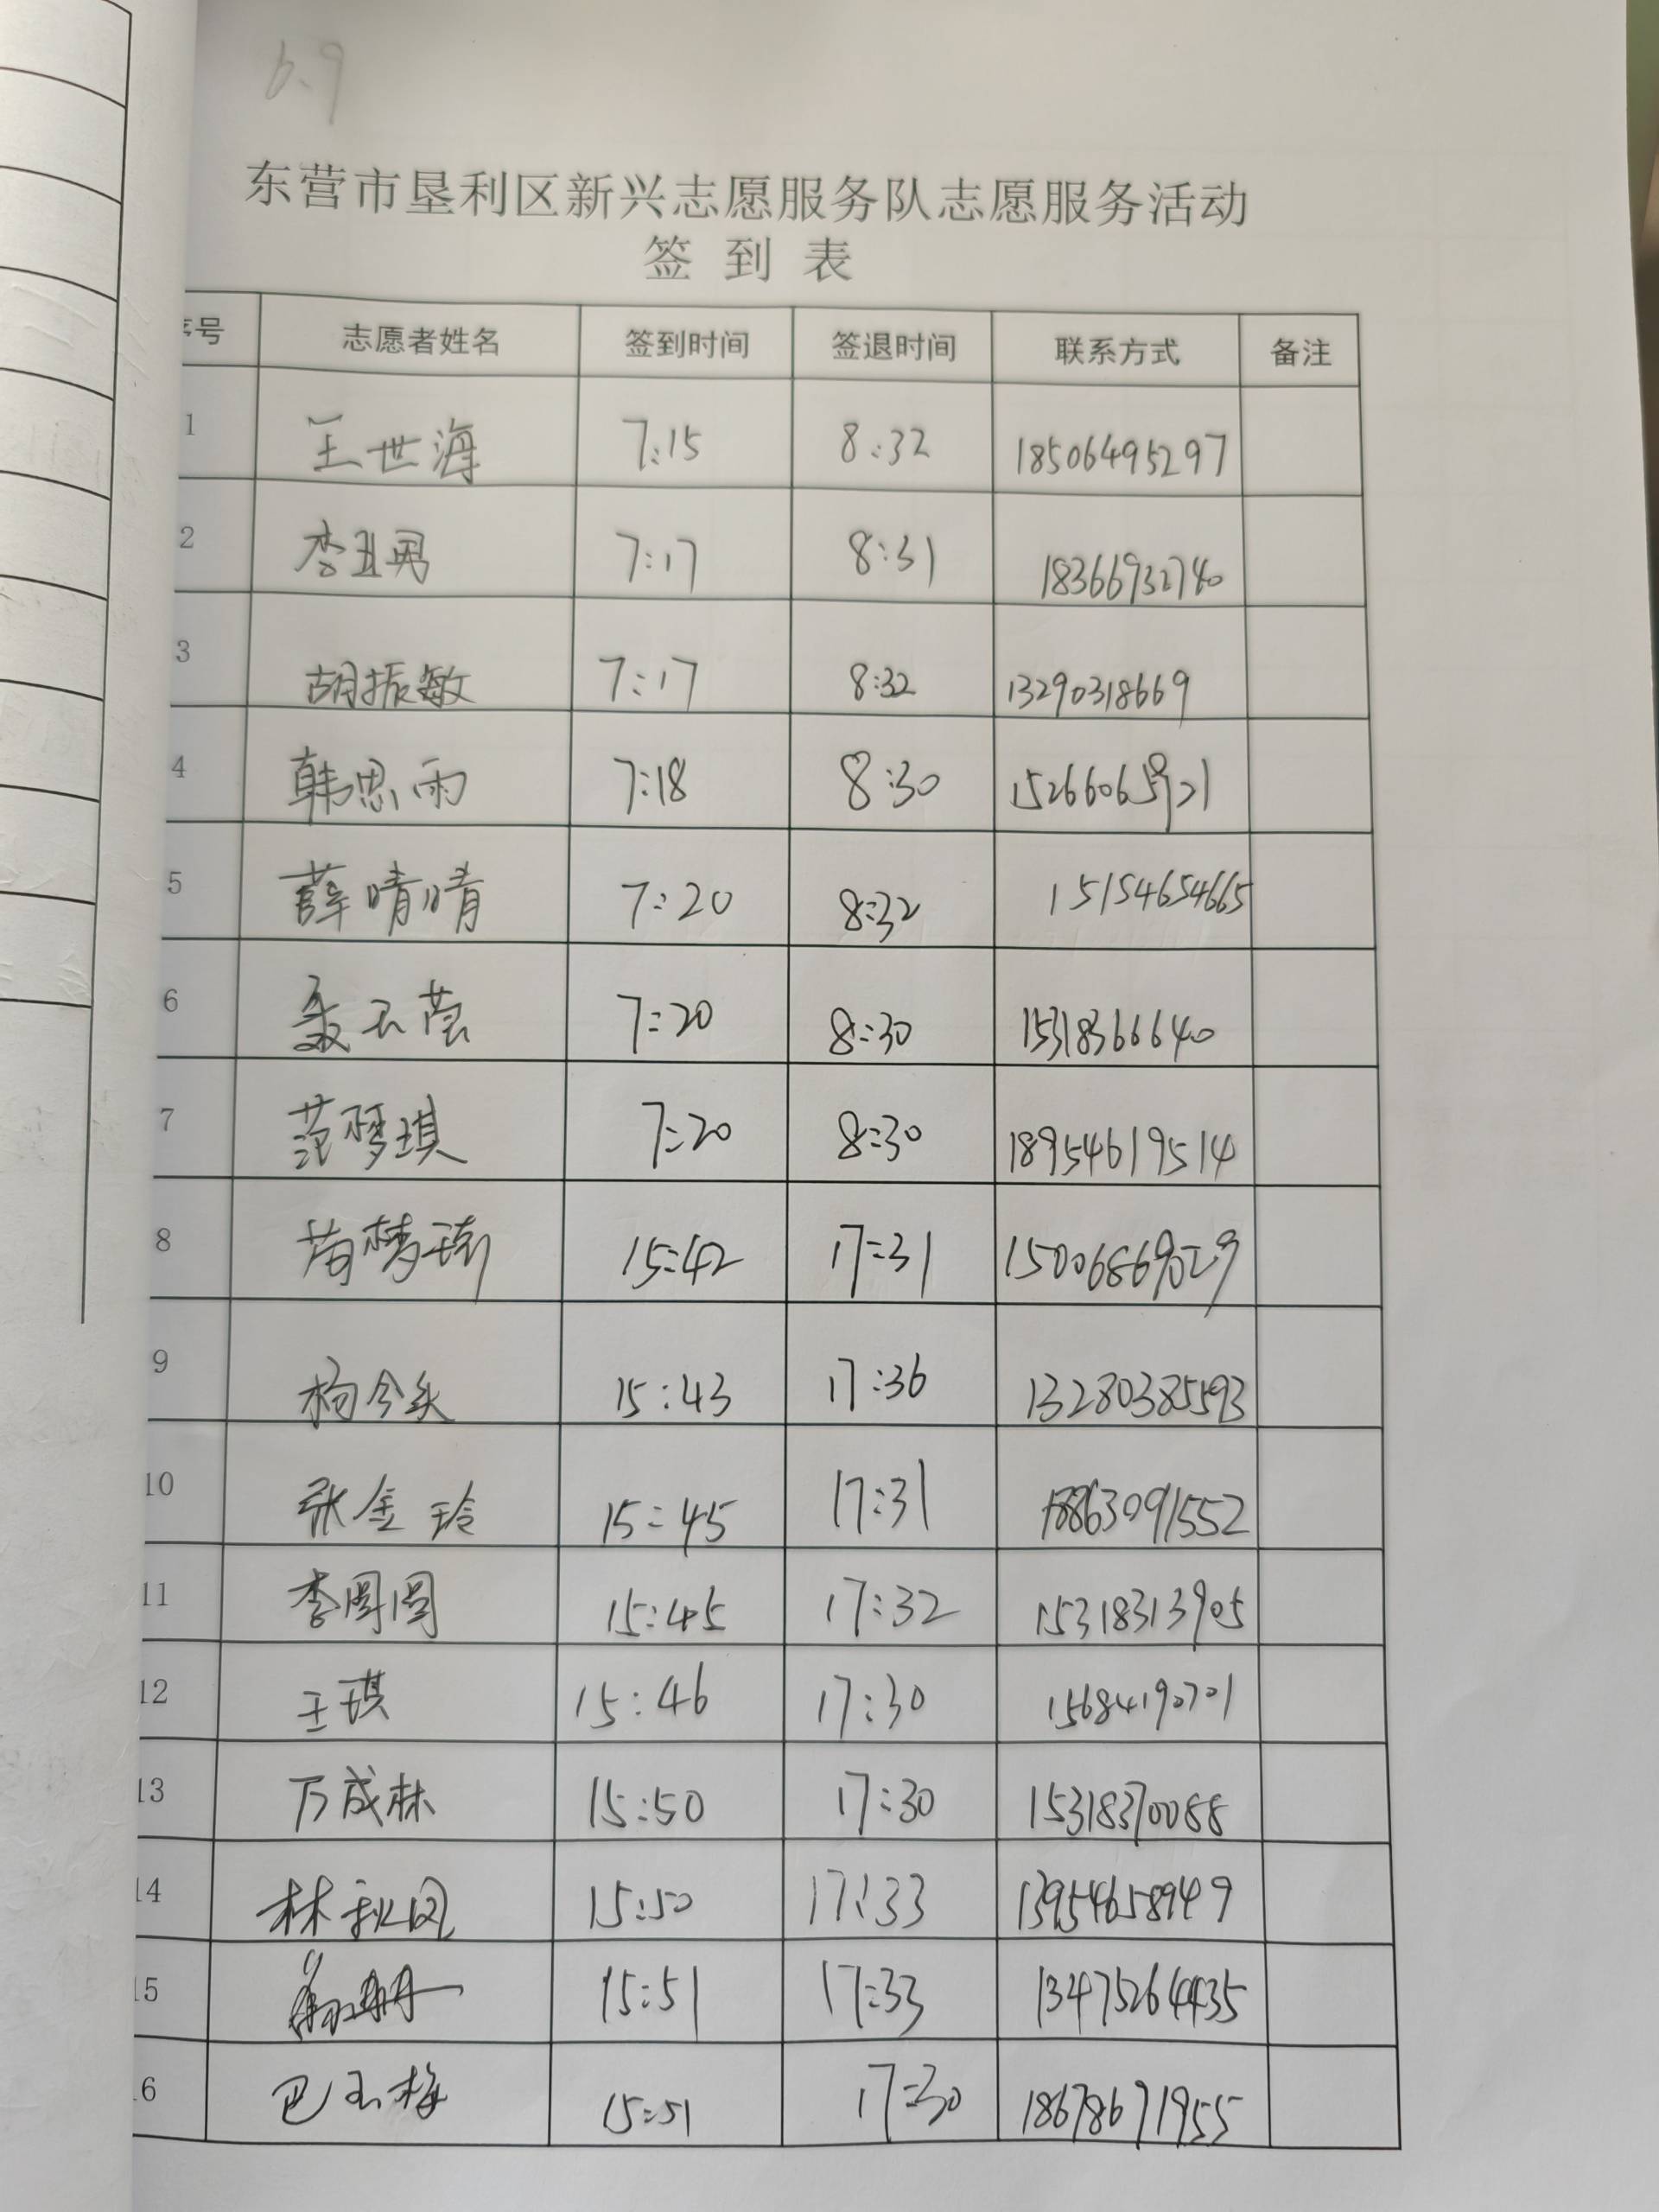 6.9
东营市垦利区新兴志愿服务队志愿服务活动
签 到 表
序号 志愿者姓名 签到时间 签退时间 联系方式 备注
1 王世海 7:15 8:32 18506495297
2 李丑男 7:17 8:31 18366932740
3 胡振敏 7:17 8:32 13290318669
4 韩思雨 7:18 8:30
5 薛晴晴 7:20 8:32 15154654665
6 聂云莹 7:20 8:30 15318366640
7 范梦琪 7:20 8:30 18954619514
8 苗梦琦 15:42 17:31 15006869029
9 杨 15:43 17:36 13280385593
10 张金玲 15:45 17:31 18863091552
11 李圆圆 15:45 17:32 15318313905
12 王琪 15:46 17:30 15684190701
13 万成林 15:50 17:30 15318370088
14 林秋风 15:50 17:33 13954658949
15 15:51 17:33 13475264435
16 巴玉梅 15:51 17:30 18678671955